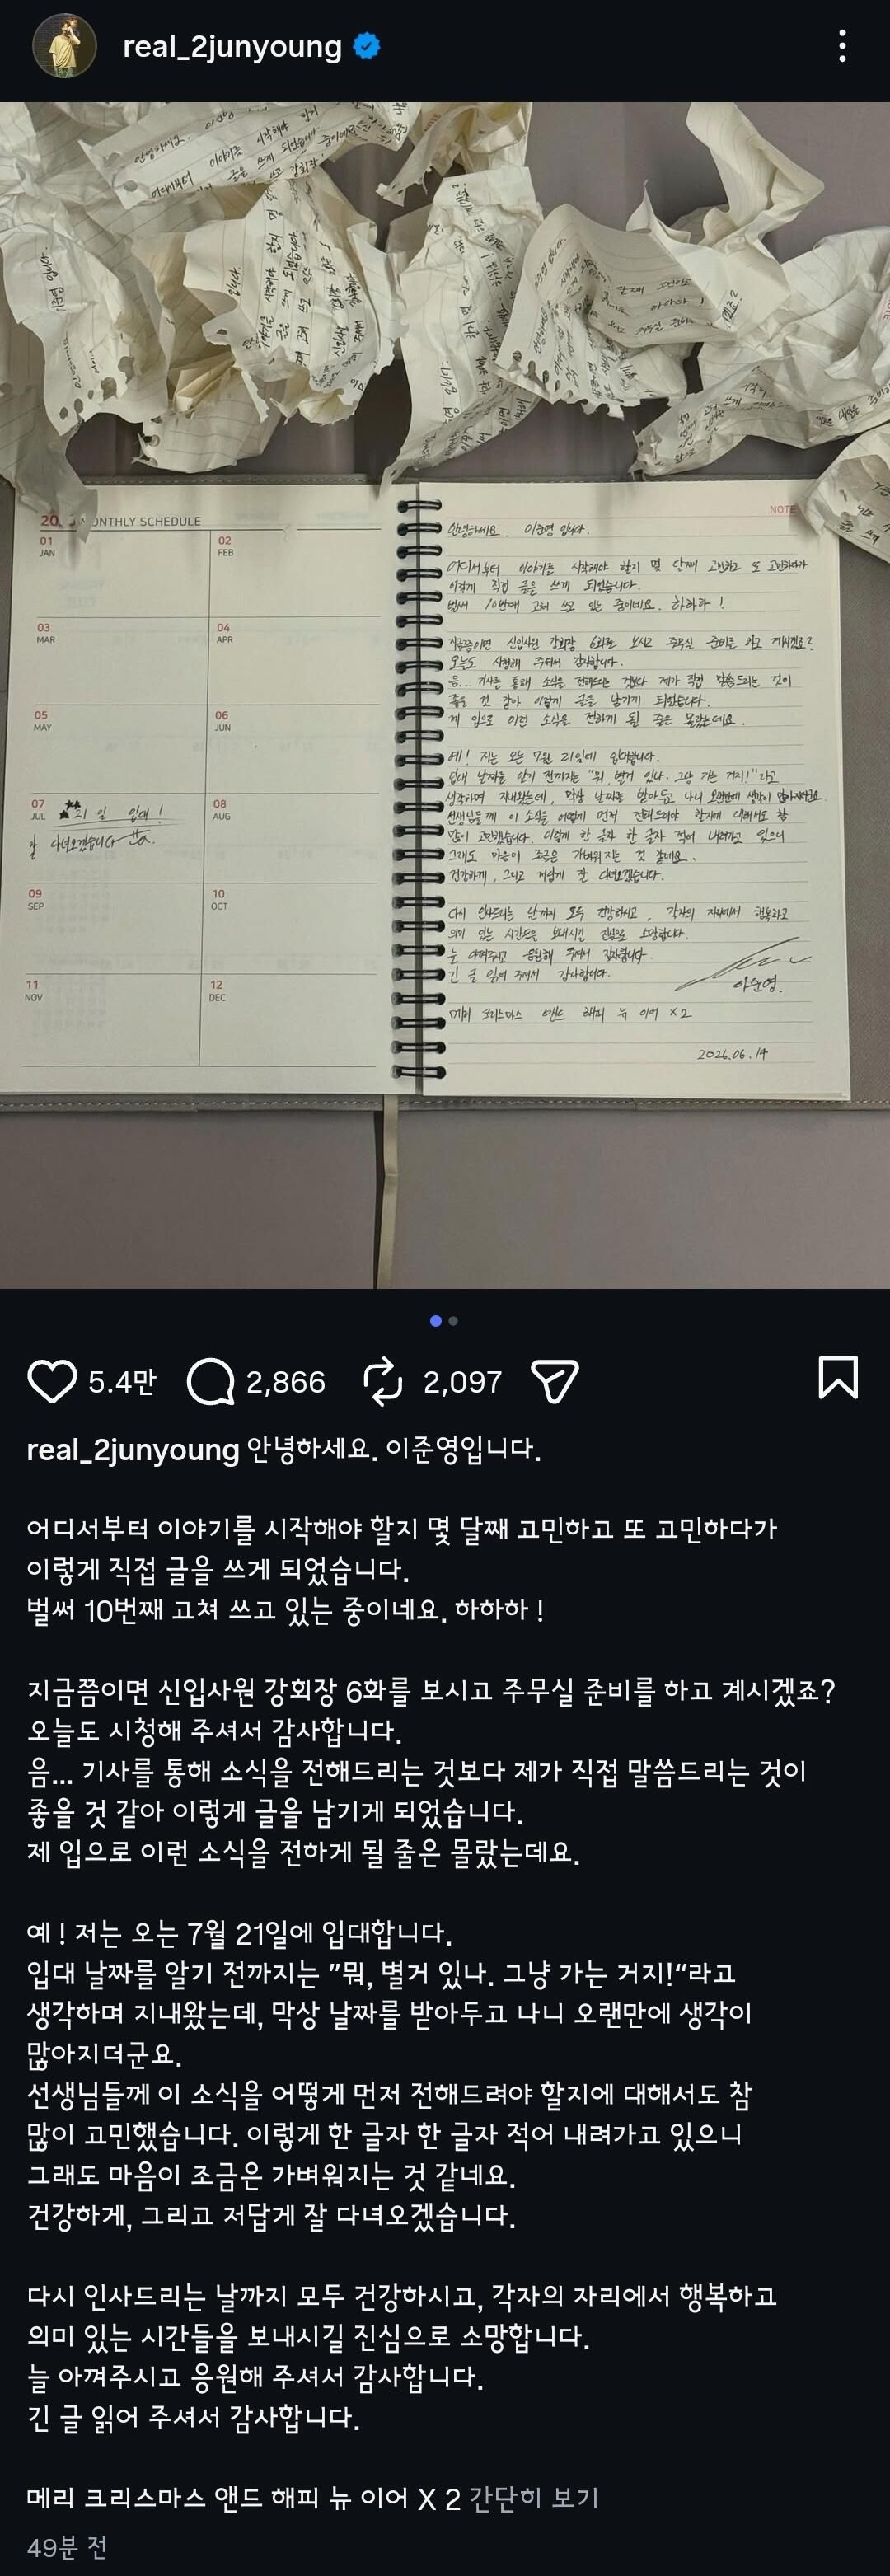 real_2junyoung
MONTHLY SCHEDULE
01
JAN
02
FEB
03
MAR
04
APR
05
MAY
06
JUN
07
JUL
21일 입대!
잘 다녀오겠습니다
08
AUG
09
SEP
10
OCT
11
NOV
12
DEC
NOTE
안녕하세요. 이준영입니다.
어디서부터 이야기를 시작해야 할지 몇 달째 고민하고 또 고민하다가
이렇게 직접 글을 쓰게 되었습니다.
벌써 10번째 고쳐 쓰고 있는 중이네요. 하하하!
지금쯤이면 신입사원 강회장 6화를 보시고 주무실 준비를 하고 계시겠죠?
오늘도 시청해 주셔서 감사합니다.
음... 기사를 통해 소식을 전해드리는 것보다 제가 직접 말씀드리는 것이
좋을 것 같아 이렇게 글을 남기게 되었습니다.
제 입으로 이런 소식을 전하게 될 줄은 몰랐는데요.
예! 저는 오는 7월 21일에 입대합니다.
입대 날짜를 알기 전까지는 "뭐, 별거 있나. 그냥 가는 거지!"라고
생각하며 지내왔는데, 막상 날짜를 받아두고 나니 오랜만에 생각이 많아지더군요.
선생님들께 이 소식을 어떻게 먼저 전해드려야 할지에 대해서도 참
많이 고민했습니다. 이렇게 한 글자 한 글자 적어 내려가고 있으니
그래도 마음이 조금은 가벼워지는 것 같네요.
건강하게, 그리고 저답게 잘 다녀오겠습니다.
다시 인사드리는 날까지 모두 건강하시고, 각자의 자리에서 행복하고
의미 있는 시간들을 보내시길 진심으로 소망합니다.
늘 아껴주시고 응원해 주셔서 감사합니다.
긴 글 읽어 주셔서 감사합니다.
이준영.
메리 크리스마스 앤드 해피 뉴 이어 X2
2026.06.14
5.4만 2,866 2,097
real_2junyoung 안녕하세요. 이준영입니다.
어디서부터 이야기를 시작해야 할지 몇 달째 고민하고 또 고민하다가
이렇게 직접 글을 쓰게 되었습니다.
벌써 10번째 고쳐 쓰고 있는 중이네요. 하하하 !
지금쯤이면 신입사원 강회장 6화를 보시고 주무실 준비를 하고 계시겠죠?
오늘도 시청해 주셔서 감사합니다.
음... 기사를 통해 소식을 전해드리는 것보다 제가 직접 말씀드리는 것이
좋을 것 같아 이렇게 글을 남기게 되었습니다.
제 입으로 이런 소식을 전하게 될 줄은 몰랐는데요.
예 ! 저는 오는 7월 21일에 입대합니다.
입대 날짜를 알기 전까지는 ”뭐, 별거 있나. 그냥 가는 거지!“라고
생각하며 지내왔는데, 막상 날짜를 받아두고 나니 오랜만에 생각이
많아지더군요.
선생님들께 이 소식을 어떻게 먼저 전해드려야 할지에 대해서도 참
많이 고민했습니다. 이렇게 한 글자 한 글자 적어 내려가고 있으니
그래도 마음이 조금은 가벼워지는 것 같네요.
건강하게, 그리고 저답게 잘 다녀오겠습니다.
다시 인사드리는 날까지 모두 건강하시고, 각자의 자리에서 행복하고
의미 있는 시간들을 보내시길 진심으로 소망합니다.
늘 아껴주시고 응원해 주셔서 감사합니다.
긴 글 읽어 주셔서 감사합니다.
메리 크리스마스 앤드 해피 뉴 이어 X 2 간단히 보기
49분 전